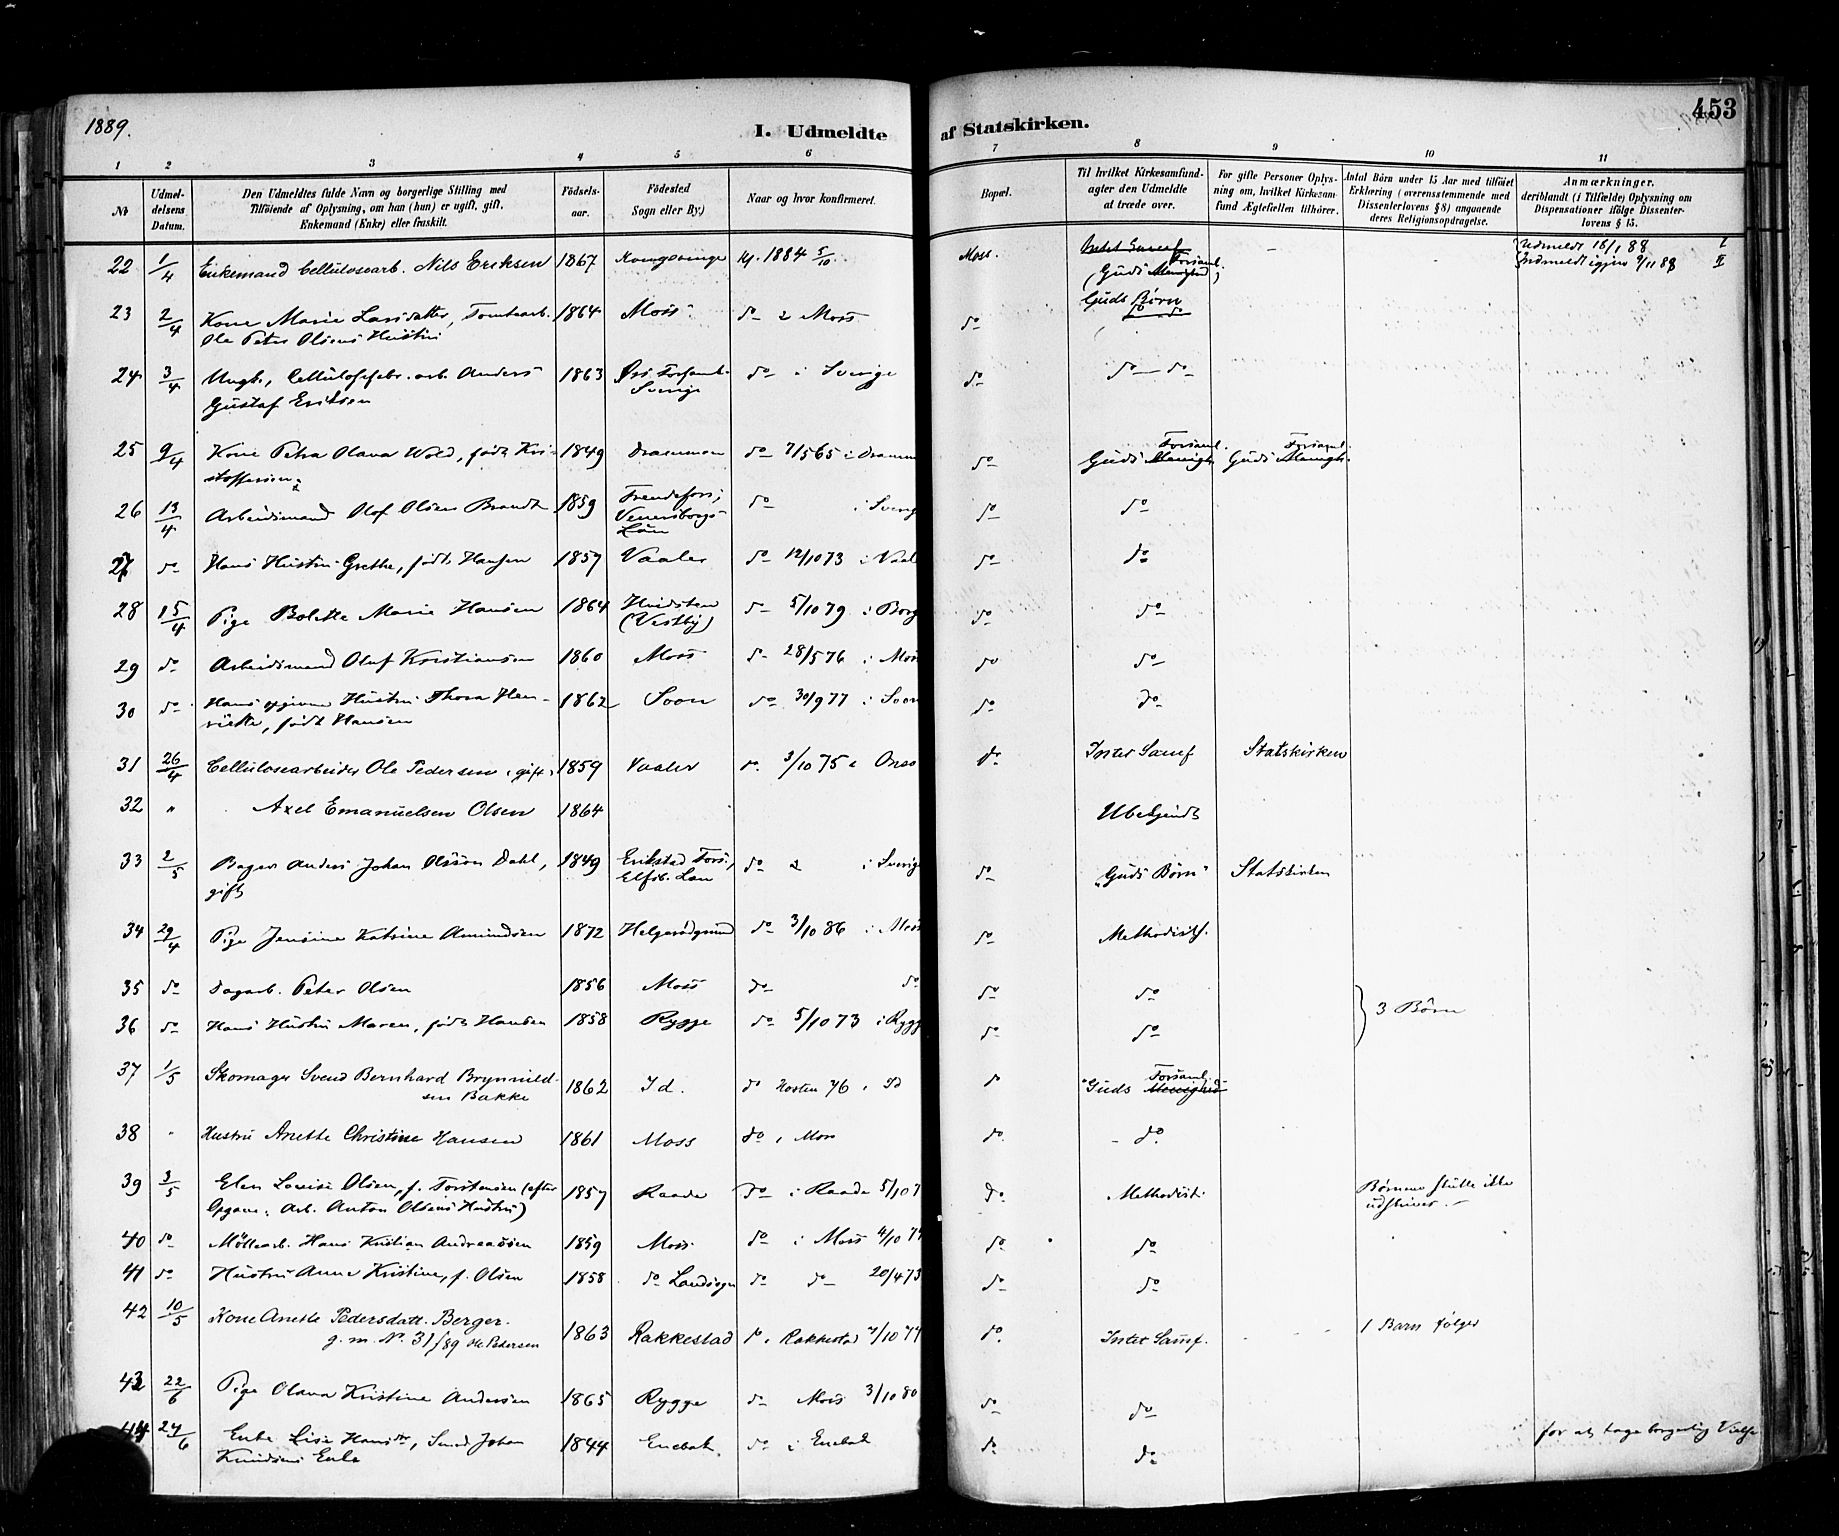 1889.
I. Udmeldte af Statskirken.
453
1 2 3 4 5 6 7 8 9 10 11
№
Udmeldelsens Datum.
Den Udmeldtes fulde Navn og borgerlige Stilling med
Tilføiende af Oplysning, om han (hun) er ugift, gift,
Enkemand (Enke) eller fraskilt.
Fødselsaar.
Fødested
Sogn eller By.)
Naar og hvor konfirmeret.
Bopæl.
Til hvilket Kirkesamfund-
agter den Udmeldte
at træde over.
For gifte Personer Oplys-
ning om, hvilket Kirkesam-
fund Ægtefællen tilhører.
Antal Børn under 15 Aar med tilføiet
Erklæring (overensstemmende med
Dissenterlovens § 8) angaaende
deres Religionsopdragelse.
Anmærkninger,
deriblandt (i Tilfælde) Oplysning om
Dispensationer ifølge Dissenter-
lovens § 15.
22 1/4 Enkemand Cellulosearb. Nils Eriksen 1867 Kongsvinger 1884 5/10 Moss. Intet Samf (Guds Menighed) Forsaml. - Udmeldt 16/1 88 I
Indmeldt igjen 9/11 88 II
Guds Børn
23 2/4 Kone Marie Larsdatter, Tomtearb. 1864 Moss do 2 Moss do do do
Ole Peter Olsens Hustru
24 3/4 Ungk., Cellulosefabr. arb. Anders 1863 Sverige do i Sverige do do do
Gustaf Eriksen
25 9/4 Kone Petra Olava Wold, født Kri- 1849 Drammen do 7/5 65 i Dramm do Guds Menigh. Forsaml. Guds Menigh. Forsaml.
stoffersen
26 13/4 Arbeidsmand Olof Olsen Brandt 1859 Frendefors, Venersborgs Län do i Sverig do do
27 do Hans Hustru Grethe, født Hansen 1857 Vaaler do 12/10 73 i Vaal do do
28 15/4 Pige Bolette Marie Hansen 1864 Hvidsten (Vestby) do 5/10 79 i Borg do do
29 do Arbeidsmand Oluf Kristiansen 1860 Moss do 28/5 76 i Moss do do
30 do Hans Hustru Thora Hen- 1862 Soon do 30/9 77 i Soon do do
riette, født Hansen
31 26/4 Cellulosearbeider Ole Pedersen (gift) 1859 Vaaler do 3/10 75 i Onso do Intet Samf Statskirken
32 " Axel Emanuelsen Olsen 1864 Ubekjendt
33 2/5 Bager Anders Johan Olsson Dahl, 1849 Erikstad Fors., Elfsb. Län do 2 i Sverige do "Guds Børn" Statskirken
gift
34 29/4 Pige Jensine Katrine Amundsen 1872 Helgerødgrund do 3/10 86 i Moss do Methodist.
35 do Dagarb. Peter Olsen 1856 Moss do do do do
36 do Hans Hustru Maren, født Hansen 1858 Rygge do 5/10 73 i Rygg do do 3 Børn
37 1/5 Skomager Svend Bernhard Brynnild- 1862 Id. do Høsten 76 i Id do "Guds Menighed Forsaml.
sen Bakke
38 " Hustru Anette Christine Hansen 1861 Moss do i Moss do do
39 3/5 Elen Lovise Olsen, f. Torstensen (efter 1857 Raade do i Raade 5/10 7 do Methodist. Børnene skulle ikke
Opgave, Arb. Anton Olsens Hustru) udskrives.
40 do Møllearb. Hans Kristian Andreassen 1859 Moss do i Moss 4/10 74 do do
41 do Hustru Anne Kristine, f. Olsen 1858 do Landsogn do do 20/4 73 do do
42 10/5 Kone Anette Pedersdatt. Berger. 1863 Rakkestad do i Rakkestad 7/10 77 do Intet Samf. 1 Barn følger
g. m. No. 31/89 Ole Pedersen
43 22/6 Pige Olava Kristine Andersen 1865 Rygge do Moss 3/10 80 do do
44 24/6 Enke Lise Hansdtr, Smed Johan 1844 Enebak. do i Enebak do do for at tage borgerlig Vielse
Knudsens Enke